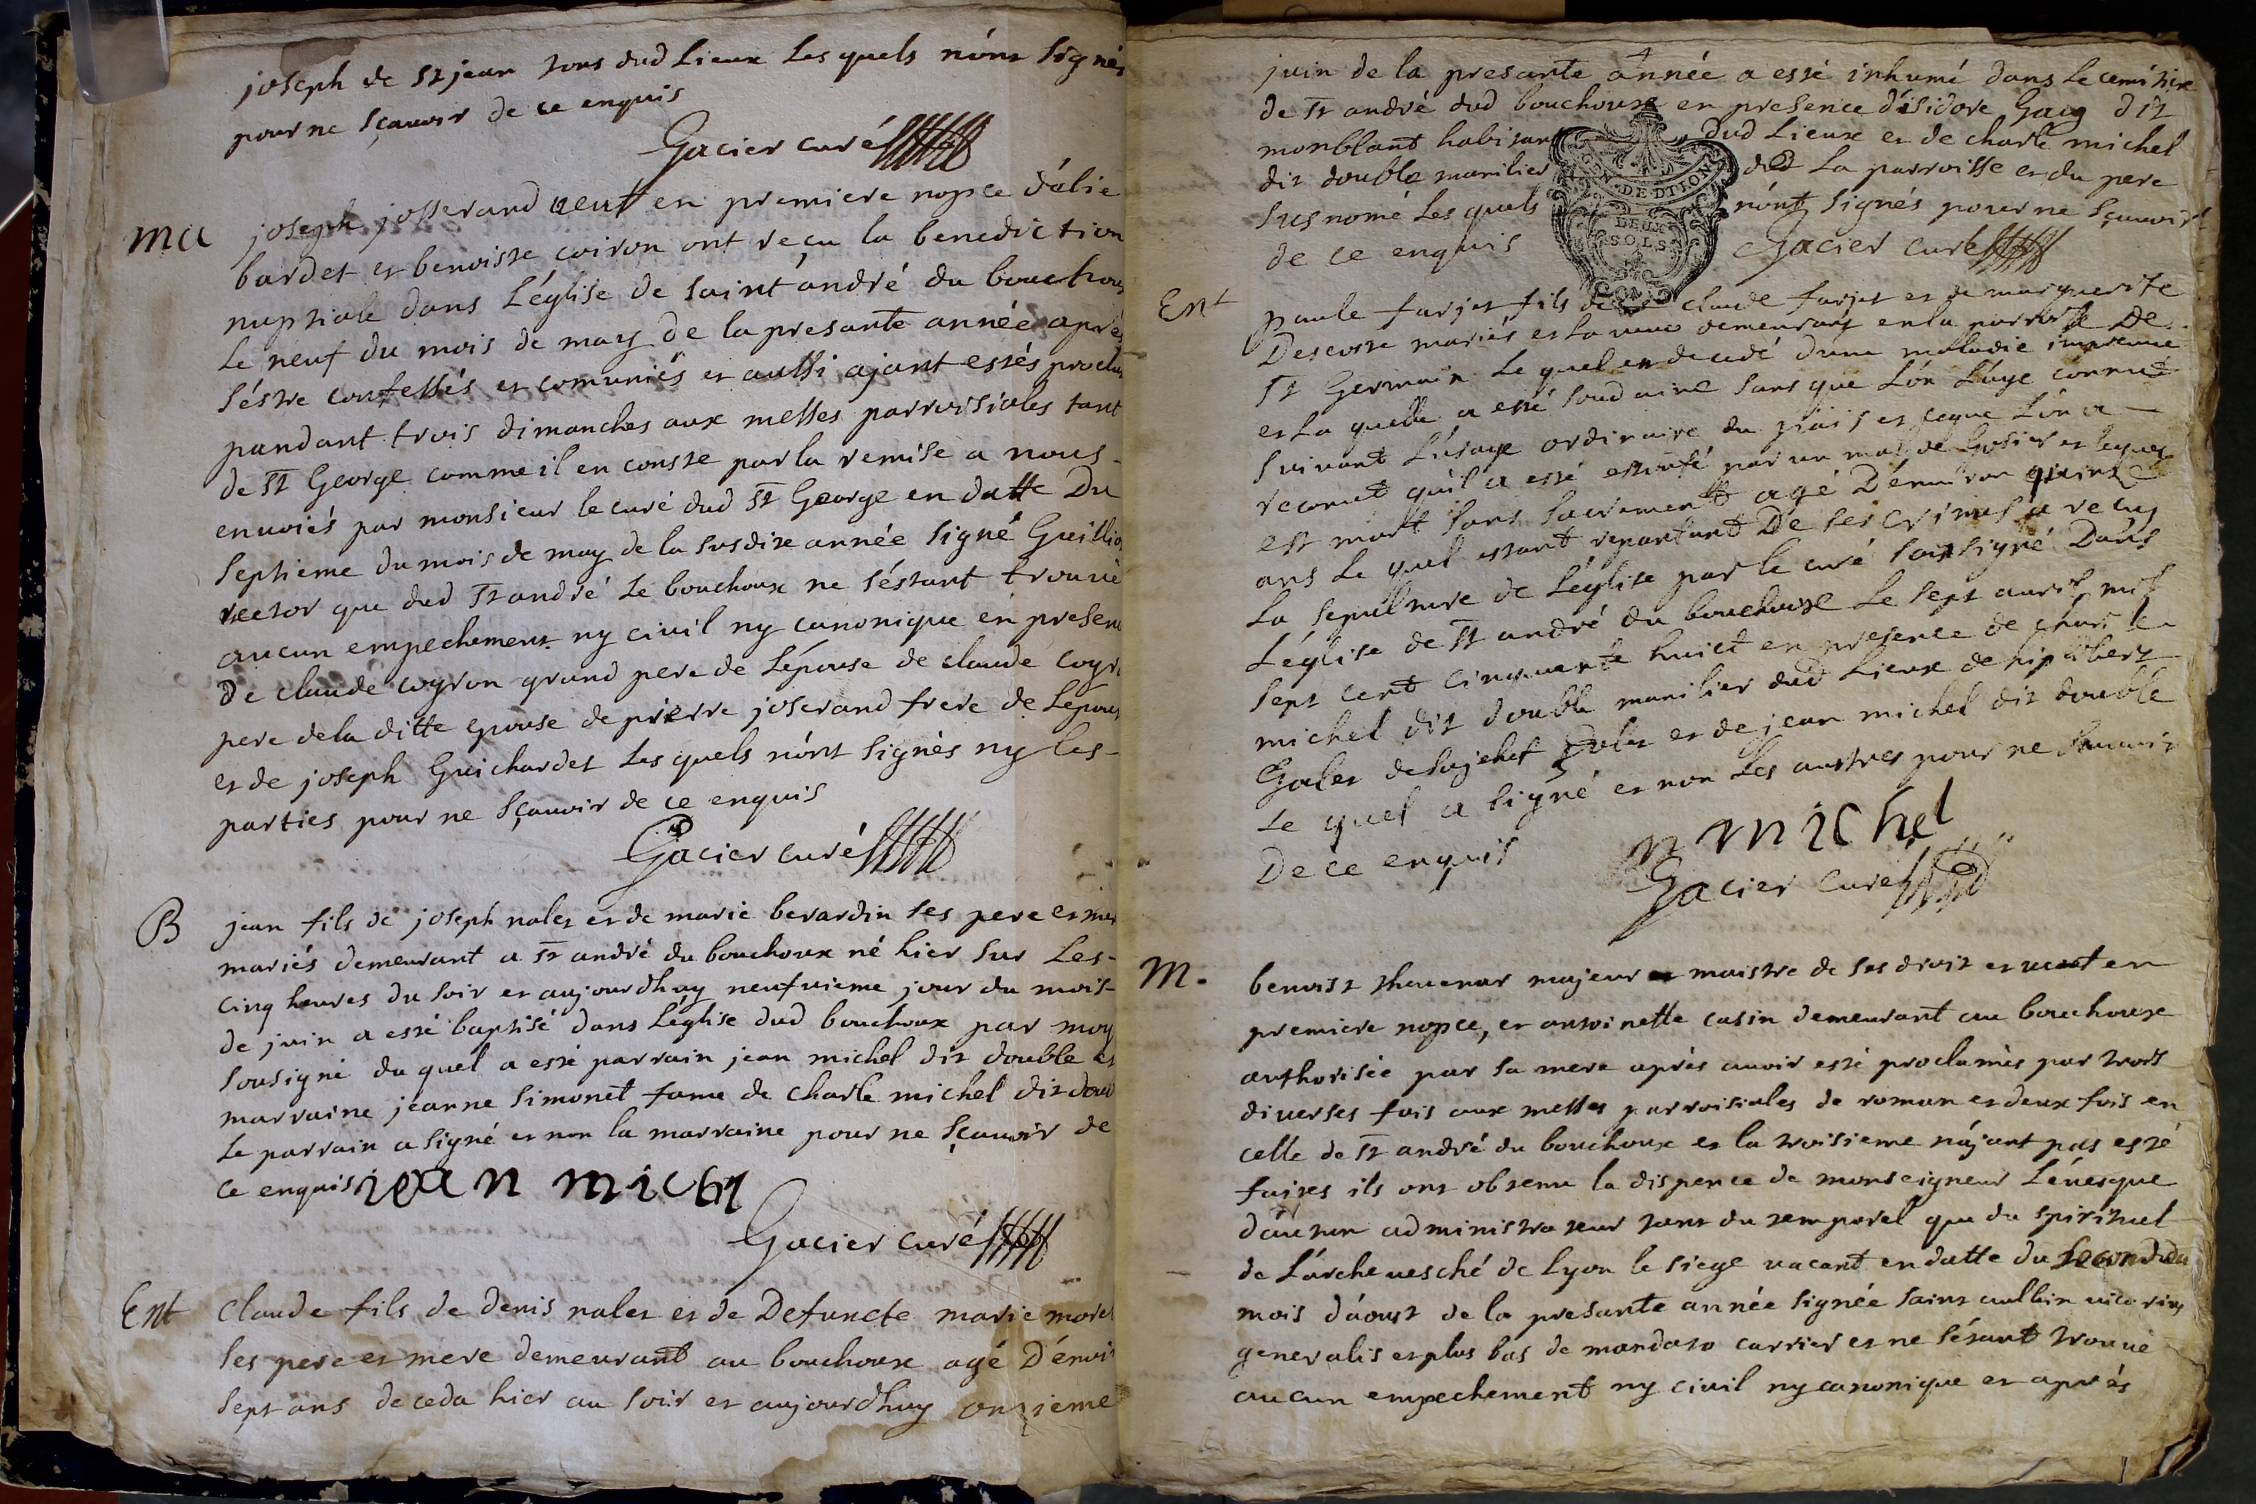 joseph de st jean tous dud Lieux Les quels nónt signés
pour ne sçauoir de ce enquis
Gacier curé
Ma
joseph josserand ueuf en premiere nopce d'alie
bardet et benoiste coiron ont reçu la benediction
nuptiale dans L'église de saint andré du bouchoux
Le neuf du mois de may de la presante année aprés
s'éstre confessés et comuniés et aussi ajant estés proclam
pandant trois dimanches aux messes parroisiales tant
de st George comme il en conste par la remise a nous
enuoiés par monsieur le curé dud st George en datte Du
septieme du mois de may de la susdite année signé Guillio
rector que dud st andré Le bouchoux ne s'éstant trouué
aucun empechement ny ciuil ny canonique en presen
De claude coyron grand pere de L'épouse de claude coyr
pere de la ditte epouse de pierre joserand frere de L'épous
et de joseph Guichardet Les quels nónt signés ny les
parties pour ne sçauoir de ce enquis
Gacier curé
B
jean fils de joseph nalet et de marie berardin ses pere et mer
mariés demeurant a st andré du bouchoux né hier sur Les
cinq heures du soir et aujourdhuy neufuieme jour du mois
de juin a esté baptisé dans L'église dud bouchoux par moy
sousigné du quel a esté parrain jean michel dit double et
marraine jeanne simonet fame de charle michel dit doub
Le parrain a signé et non la marraine pour ne sçauoir de
ce enquis jean michel
Gacier curé
Ent
Claude fils de denis nalet et de Defuncte marie morel
ses pere et mere demeurant au bouchoux agé D'énuir
sept ans deceda hier au soir et aujourdhuy onzieme
juin de la presante année a esté inhumé dans Le cemitiere
de st andré dud bouchoux en presence d'isidore Gay dit
monblant habitant dud Lieux et de charle michel
dit double marilier dud La parroisse et du pere
susnomé Les quels nónt signés pour ne sçauoir
de ce enquis Gacier curé
GEN. DE DIJON
DEUX
SOLS
Ent
paule farjet fils de claude farjet et de marguerite
Descoste mariés demeurant en la parroisse De
st Germain Le quel et decedé d'une maladie
et La quelle a esté soudaine sans que L'ón L'aye connut
suiuant L'usage ordinaire du et ce que L'ón a
reconnut qu'il a esté estoufé par un mal de Gosier et
est mort sans sacrement agé D'énuiron quinze
ans Le quel estant repantant De ses crimes a reçu
La sepulture de L'église par le curé sousigné Dans
L'église de st andré du bouchoux Le sept auril mil
sept cent cinquante huict en presence de charle
michel dit double marilier dud Lieux de philibert
et de jean michel dit double
Le quel a signé et non Les austres pour ne sçauoir
De ce enquis
michel
Gacier curé
M.
benoist thevenar majeur maistre de ses droit et ueuf en
premiere nopce, et antoinette casin demeurant au bouchoux
authorisée par sa mere aprés auoir esté proclamés par trois
diuerses fois aux messes parroisiales de roman et deux fois en
celle de st andré du bouchoux et la troisieme n'ajant pas esté
faites ils ont obtenu la dispence de monseigneur L'éuesque
d'autun administrateur tant du temporel que du spirituel
de L'árcheuesché de Lyon le siege uacant en datte du second du
mois d'áoust de la presante année signée saint aulbin uicarius
generalis et plus bas de mandato carrier et ne s'étant trouué
aucun empechement ny ciuil ny canonique et aprés